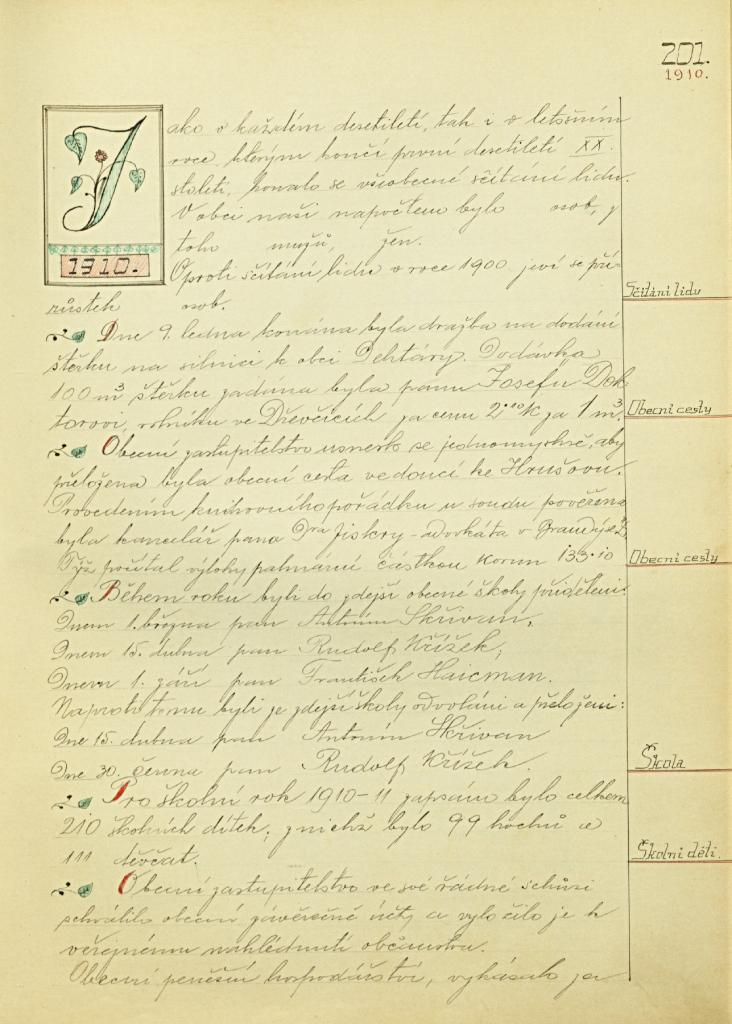 201.
1910.
Jako v každém desetiletí, tak i v letošním
roce, kterým končí první desetiletí XX.
století, konalo se všeobecné sčítání lidu.
V obci naší napočteno bylo osob, z
toho mužů, žen.
1910.
Oproti sčítání lidu v roce 1900 jeví se pří-
růstek osob.
Sčítání lidu
Dne 9. ledna konána byla dražba na dodání
štěrku na silnici k obci Dehtáry. Dodávka
100 m³ štěrku zadána byla panu Josefu Dok
torovi, rolníku ve Dřevčicích za cenu 2·10 K za 1 m³.
Obecní cesty
Obecní zastupitelstvo usneslo se jednomyslně, aby
přeložena byla obecní cesta vedoucí ke Hrušovu.
Provedením knihovního pořádku u soudu pověřena
byla kancelář pana Dra Jiskry - advokáta v Brandýse n. L.
Týž počítal výlohy palmární částkou korun 133·10
Obecní cesty
Během roku byli do zdejší obecné školy přiděleni:
Dnem 1. března pan Antonín Skřivan,
Dnem 15. dubna pan Rudolf Křížek,
Dnem 1. září pan František Haicman.
Naproti tomu byli ze zdejší školy odvoláni a přeloženi:
Dne 15. dubna pan Antonín Skřivan
Dne 30. června pan Rudolf Křížek.
Škola
Pro školní rok 1910-11 zapsáno bylo celkem
210 školních dítek, z nichž bylo 99 hochů a
111 děvčat.
Školní děti.
Obecní zastupitelstvo ve své řádné schůzi
schválilo obecní závěrečné účty a vyložilo je k
veřejnému nahlédnutí občanstvu.
Obecní peněžní hospodářství, vykázalo za